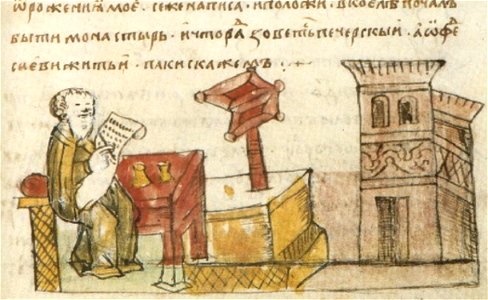 ѿ рожениꙗ моеⷢ. се же написаⷯ и положиⷯ. в кое лѣⷮ почалъ
быти монастырь. и что раⷣ зоветⷭ печерскыи. а ѡ ѳеѡⷣ
сиеви житьи паки скажемъ